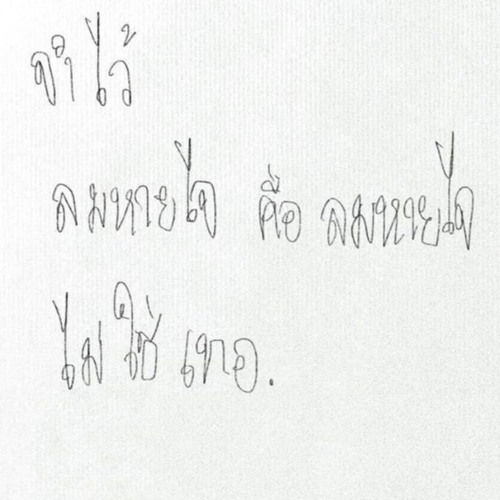 จำไว้
ลมหายไจ คือ ลมหายไจ
ไม่ ใช่ เทอ.